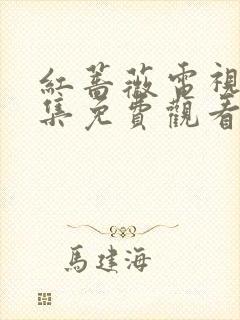 紅薔薇電視
集免費觀看
馬建海